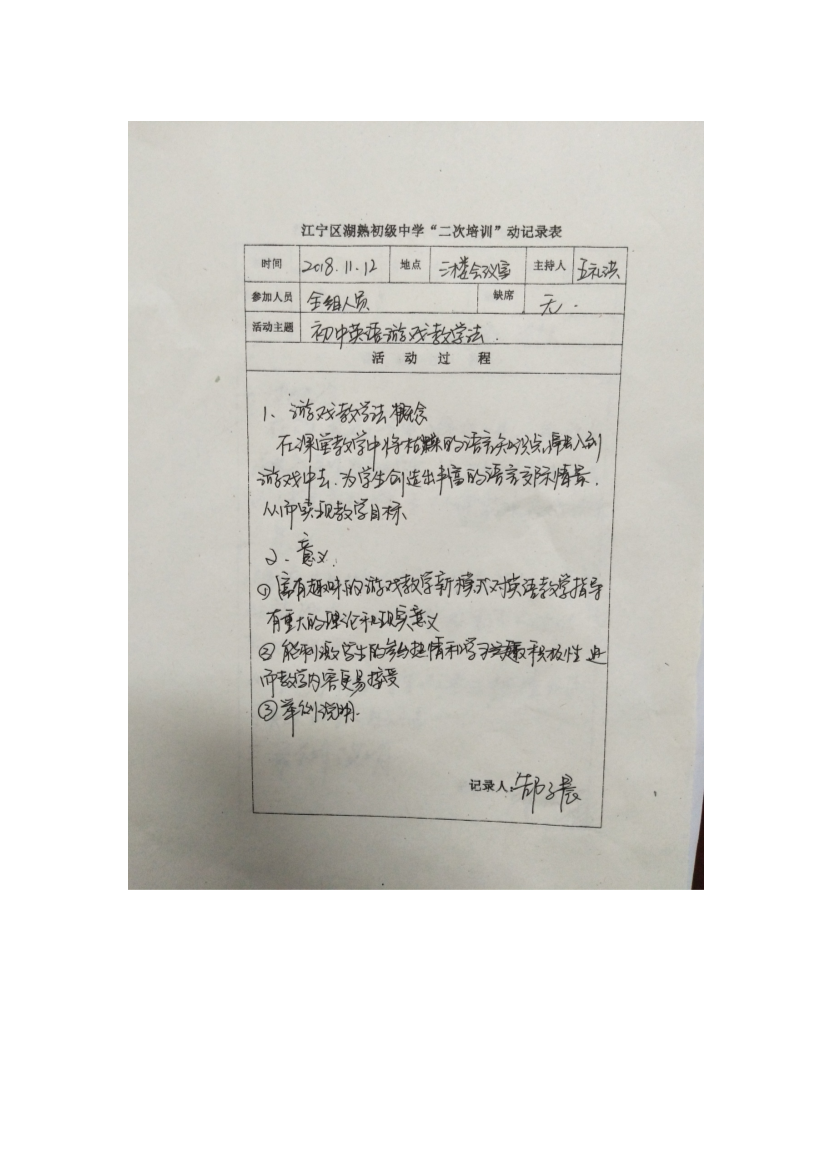 江宁区湖熟初级中学“二次培训”动记录表
时间 2018.11.12 地点 三楼会议室 主持人 王礼洪
参加人员 全组人员 缺席 无.
活动主题 初中英语游戏教学法.
活动过程
1、游戏教学法概念
在课堂教学中将枯燥的语言知识点融入到
游戏中去.为学生创造出丰富的语言交际情景.
从而实现教学目标.
2.意义:
①富有趣味的游戏教学新模式对英语教学指导
有重大的理论和现实意义
②能刺激学生的参与热情和学习兴趣积极性 进
而教学内容更易接受
③举例说明.
记录人:郜子晨